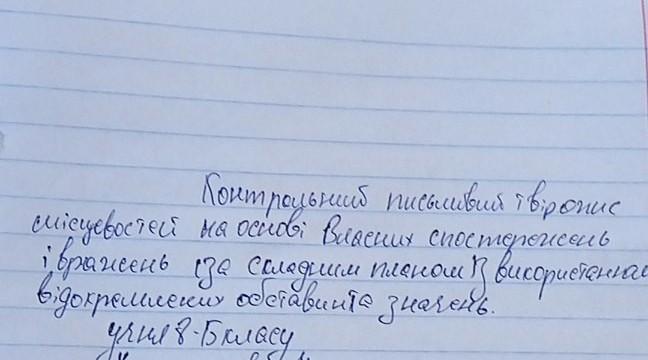 Контрольний письмовий твір опис
місцевостей на основі власних спостережень
і вражень (за складним планом) з використанням
відокремлених обставин та значень.
учня 8-Б класу